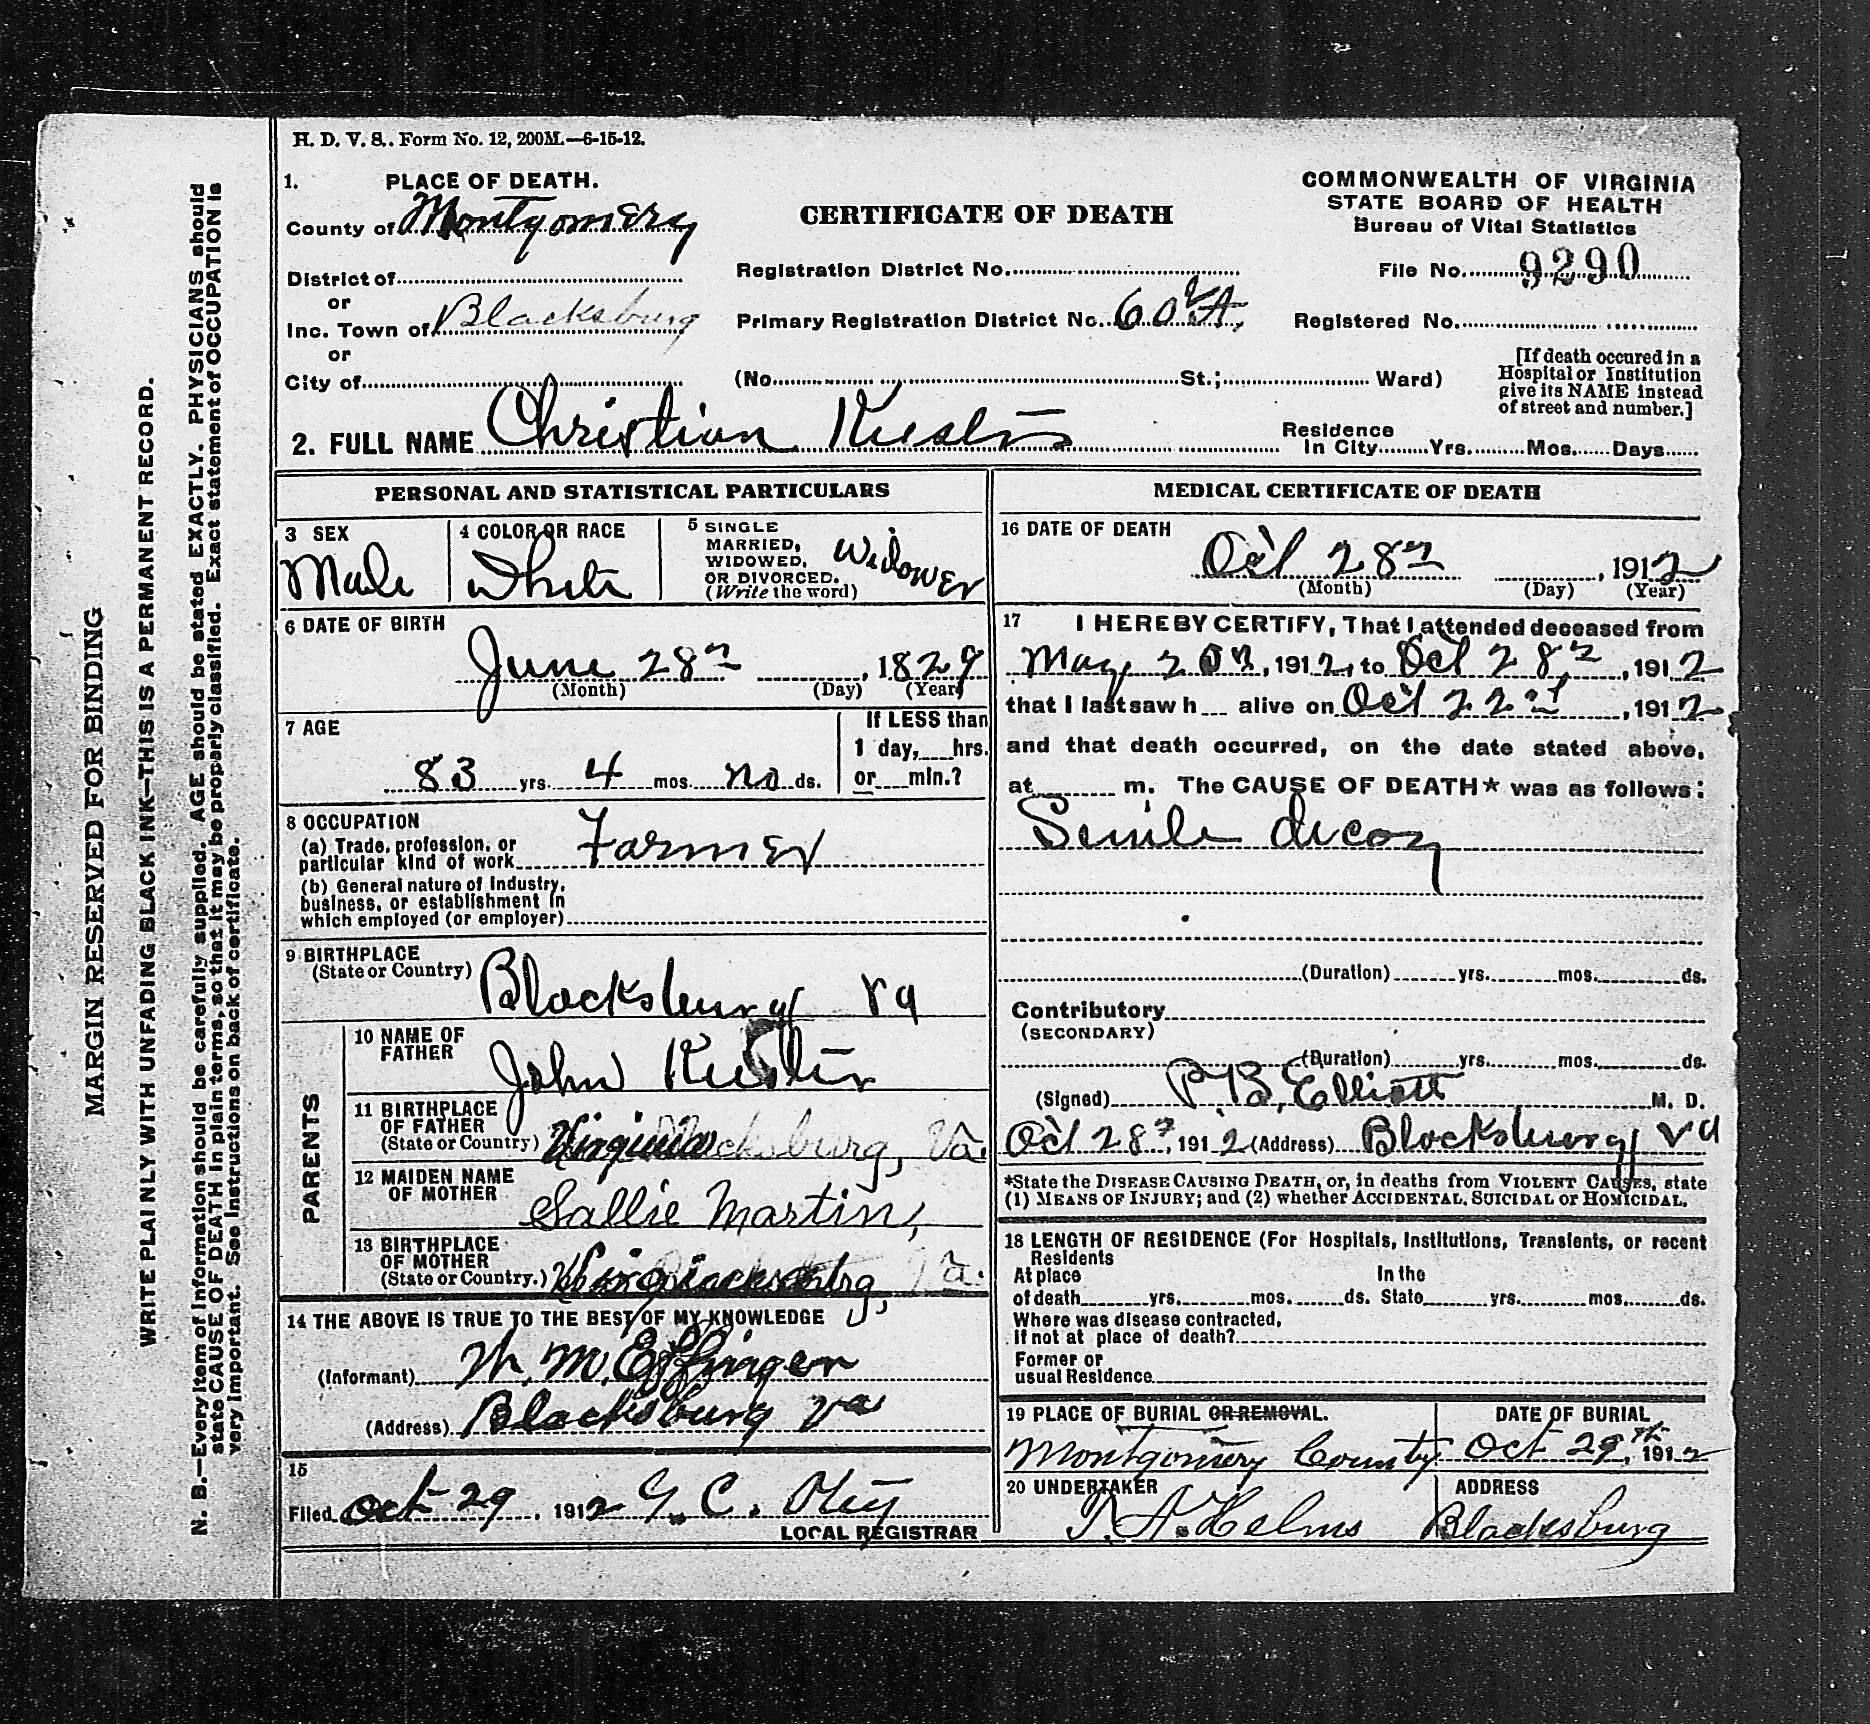 H. D. V. S.. Form No. 12, 200M.—6-15-12.
1. PLACE OF DEATH.
County of Montgomery
District of
or
Inc. Town of Blacksburg
or
City of
CERTIFICATE OF DEATH
COMMONWEALTH OF VIRGINIA
STATE BOARD OF HEALTH
Bureau of Vital Statistics
Registration District No.
File No. 9290
Primary Registration District No. 60
Registered No.
(No. St.; Ward)
[If death occured in a
Hospital or Institution
give its NAME instead
of street and number.]
2. FULL NAME Christian
Residence
In City Yrs. Mos. Days
PERSONAL AND STATISTICAL PARTICULARS
3 SEX
Male
4 COLOR OR RACE
White
5 SINGLE
MARRIED,
WIDOWED,
OR DIVORCED.
(Write the word)
Widower
6 DATE OF BIRTH
June 28th, 1829
(Month) (Day) (Year)
7 AGE
83 yrs. 4 mos. no ds.
If LESS than
1 day, hrs.
or min.?
8 OCCUPATION
(a) Trade, profession, or
particular kind of work Farmer
(b) General nature of Industry,
business, or establishment in
which employed (or employer)
9 BIRTHPLACE
(State or Country) Blacksburg Va
PARENTS
10 NAME OF
FATHER
John
11 BIRTHPLACE
OF FATHER
(State or Country) Virginia Blacksburg, Va.
12 MAIDEN NAME
OF MOTHER
Sallie Martin,
13 BIRTHPLACE
OF MOTHER
(State or Country.) Blacksburg, Va.
14 THE ABOVE IS TRUE TO THE BEST OF MY KNOWLEDGE
(Informant) M. Effinger
(Address) Blacksburg Va
15
Filed Oct 29, 1912 C.
LOCAL REGISTRAR
MEDICAL CERTIFICATE OF DEATH
16 DATE OF DEATH
Oct 28th, 1912
(Month) (Day) (Year)
17 I HEREBY CERTIFY, That I attended deceased from
May 20th, 1912, to Oct 28th, 1912
that I last saw h alive on Oct 22nd, 1912
and that death occurred, on the date stated above,
at m. The CAUSE OF DEATH* was as follows:
Senile decay
(Duration) yrs. mos. ds.
Contributory
(SECONDARY)
(Duration) yrs. mos. ds.
(Signed) B. Elliott M. D.
Oct 28th, 1912 (Address) Blacksburg Va
*State the DISEASE CAUSING DEATH, or, in deaths from VIOLENT CAUSES, state
(1) MEANS OF INJURY; and (2) whether ACCIDENTAL, SUICIDAL or HOMICIDAL.
18 LENGTH OF RESIDENCE (For Hospitals, Institutions, Transients, or recent
Residents
At place In the
of death yrs. mos. ds. State yrs. mos. ds.
Where was disease contracted,
if not at place of death?
Former or
usual Residence
19 PLACE OF BURIAL OR REMOVAL.
Montgomery County
DATE OF BURIAL
Oct 29th, 1912
20 UNDERTAKER
T. A. Helms
ADDRESS
Blacksburg
MARGIN RESERVED FOR BINDING
WRITE PLAINLY WITH UNFADING BLACK INK—THIS IS A PERMANENT RECORD.
N. B.—Every item of information should be carefully supplied. AGE should be stated EXACTLY. PHYSICIANS should
state CAUSE OF DEATH in plain terms, so that it may be properly classified. Exact statement of OCCUPATION is
very important. See instructions on back of certificate.